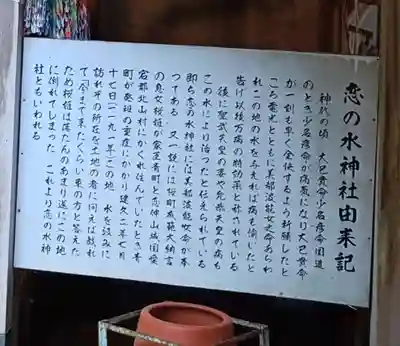 恋の水神社由来記
神代の頃 大巳貴命少名彦命国造
のとき少名彦命が病気になり大巳貴命
が一刻も早く全快するよう祈願したと
ころ電光とともに美都波能女之命あらわ
れこの地の水を与えれば病も愈いたと
告げ以後万病の特効薬と称されている
後に聖武天皇の妻や光孝天皇の病も
この水により治ったと伝えられている
即ち恋の水神社には美都波能女命が奉
ってある 又一説には桜町成範大納言
の息女桜姫が家臣青町と恋仲となり
北山村にかくれ住んでいたとき青
町が発病の重症にかかり建久二年七月
十七日(一一九一年)この地へ水を汲みに
訪れその所在を土地の者に問えば戯れ
て今まで来たくらい東の方と答えた
ため桜姫は落たんのあまり遂にこの地
に倒れてしまった これより恋の水神
社ともいわれる